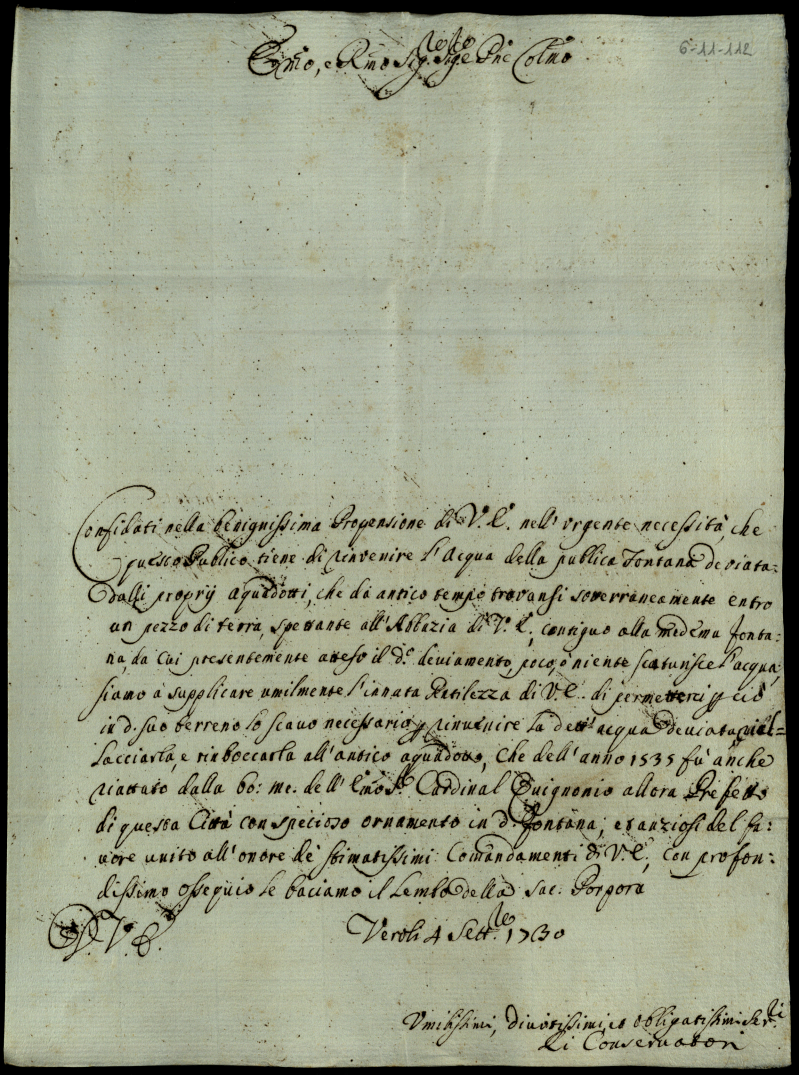 6-11-112
Emo, e Rmo Sig.re Sig.e Pne Colmo
Confidati nella benignissima Propensione di V.E. nell'urgente necessità, che
questo Publico tiene di rinvenire l'Acqua della publica Fontana deviata
dalli proprij aquedotti, che da antico tempo trovansi soterraneamente entro
un pezzo di terra, spettante all'Abbazia di V.E., contiguo alla medema fonta-
na, da cui presentemente atteso il d.o deviamento, poco, ò niente scaturisce l'acqua,
siamo à supplicare umilmente l'innata Gentilezza di V.E. di permetterci p ciò
in d.o suo terreno lo scavo necessario p rinvenire la dett'acqua deviata, riall-
lacciarla, e rinboccarla all'antico aquedotto, che dell'anno 1535 fù anche
riattato dalla bo: me. dell'Emo Sr. Cardinal Quignonio allora Prefetto
di questa Città con specioso ornamento in d.a fontana; et anziosi del fa-
vore unito all'onore de stimatissimi Comandamenti di V.E., con profon-
dissimo ossequio le baciamo il lembo della sac. Porpora
D. V. E.
Veroli 4 Sett.re 1730
Umilissimi, divotissimi, et obligatissimi Ser.ri
Li Conservatori